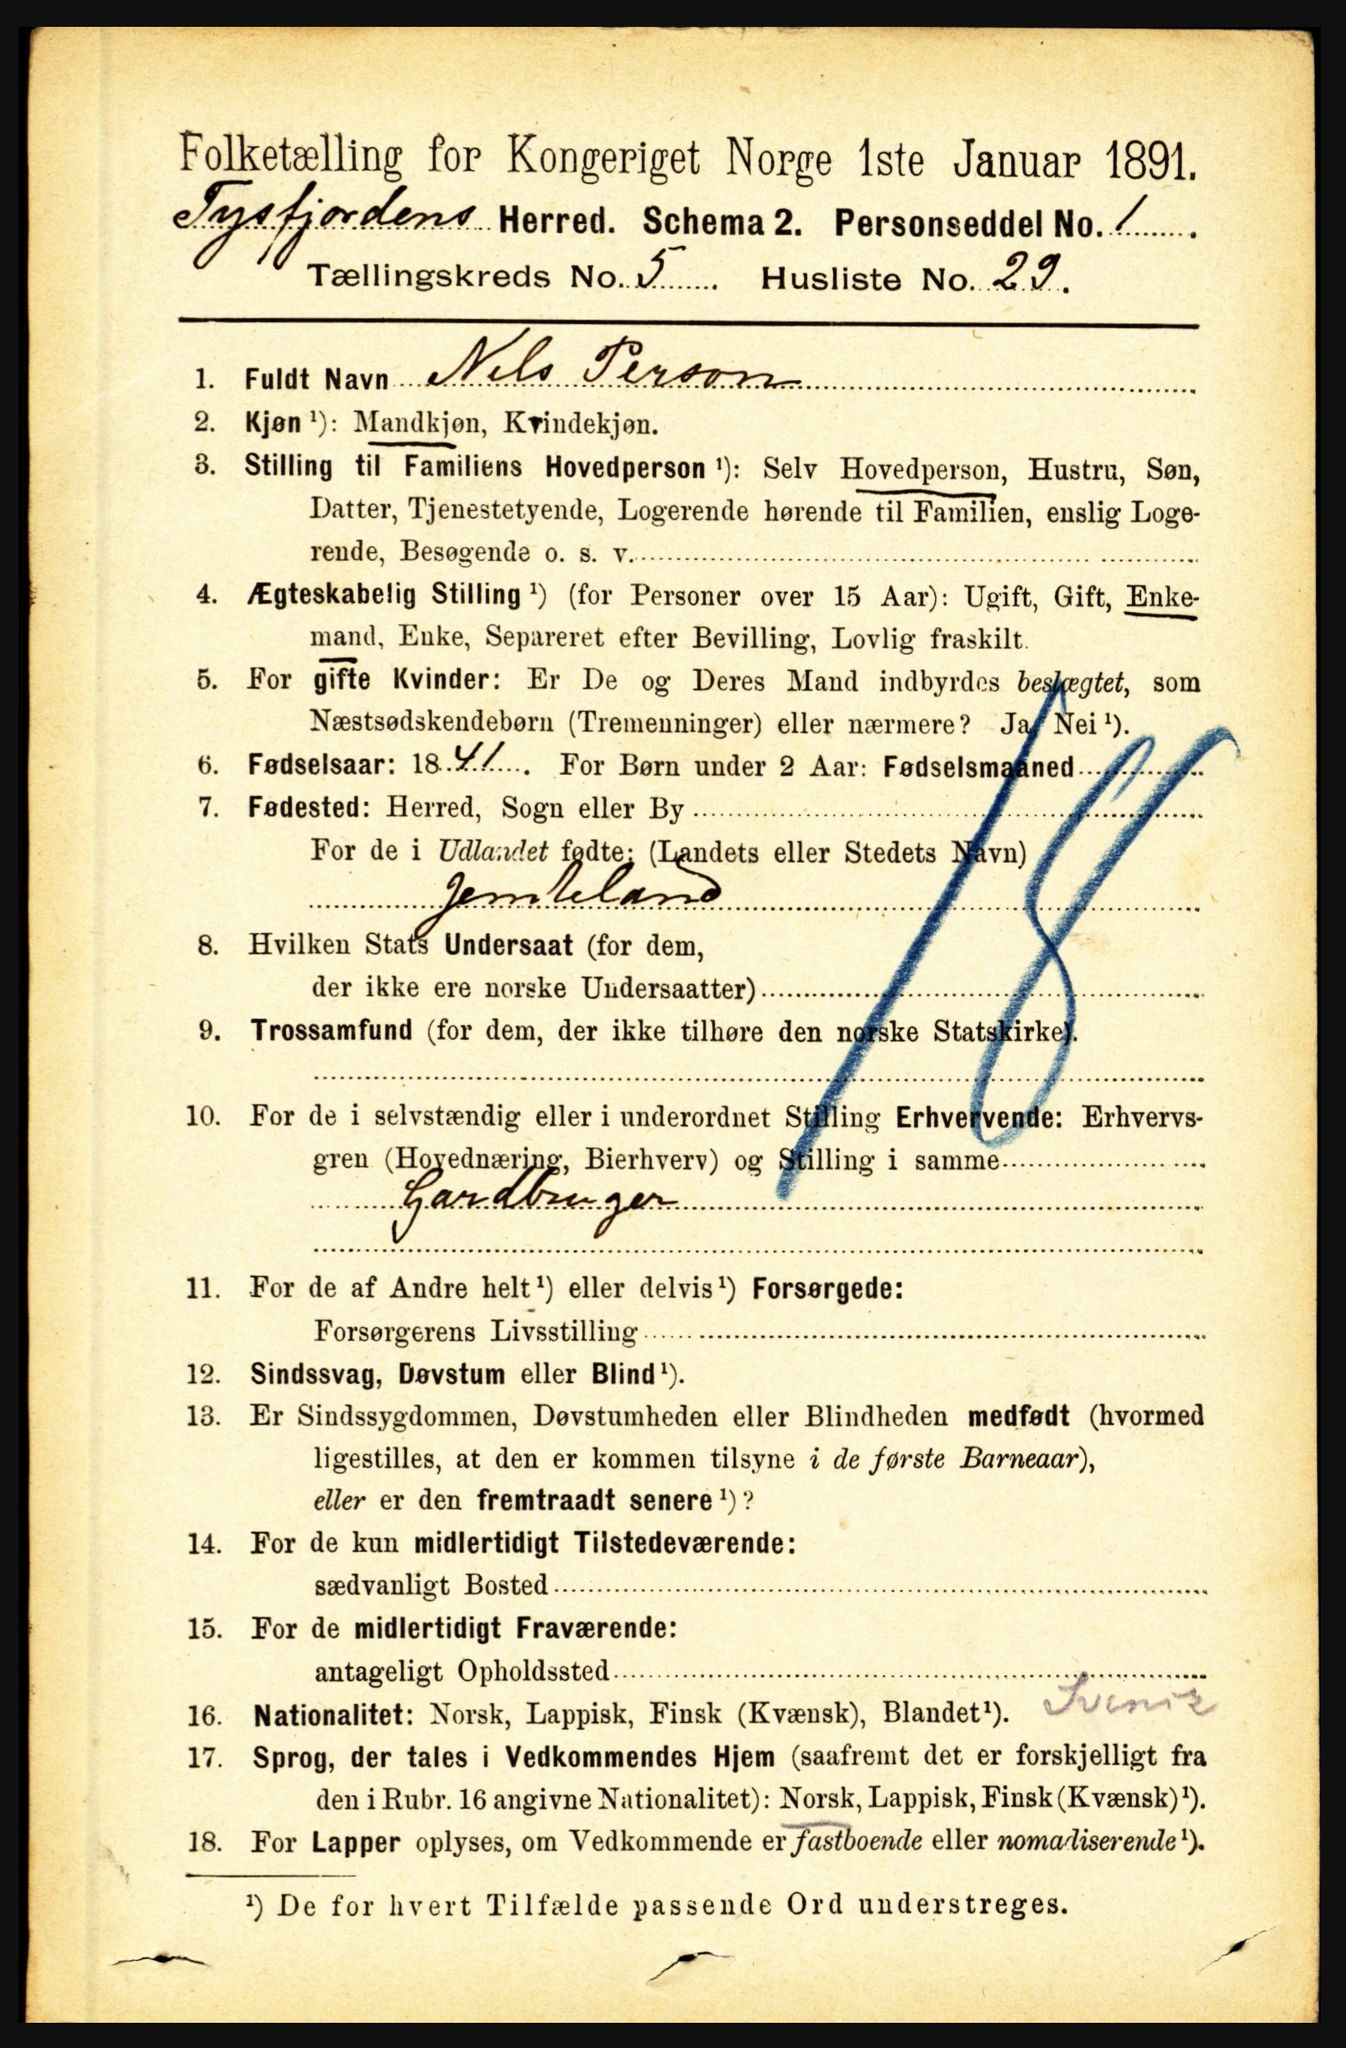 Folketælling for Kongeriget Norge 1ste Januar 1891.
Tysfjordens Herred. Schema 2. Personseddel No. 1.
Tællingskreds No. 5. Husliste No. 29.
1. Fuldt Navn Nels Person
2. Kjøn ¹): Mandkjøn, Kvindekjøn.
3. Stilling til Familiens Hovedperson ¹): Selv Hovedperson, Hustru, Søn,
Datter, Tjenestetyende, Logerende hørende til Familien, enslig Loge-
rende, Besøgende o. s. v.
4. Ægteskabelig Stilling ¹) (for Personer over 15 Aar): Ugift, Gift, Enke-
mand, Enke, Separeret efter Bevilling, Lovlig fraskilt.
5. For gifte Kvinder: Er De og Deres Mand indbyrdes beslægtet, som
Næstsødskendebørn (Tremenninger) eller nærmere? Ja, Nei ¹).
6. Fødselsaar: 1841. For Børn under 2 Aar: Fødselsmaaned
7. Fødested: Herred, Sogn eller By
For de i Udlandet fødte: (Landets eller Stedets Navn)
Jemteland
8. Hvilken Stats Undersaat (for dem,
der ikke ere norske Undersaatter)
9. Trossamfund (for dem, der ikke tilhøre den norske Statskirke).
18
10. For de i selvstændig eller i underordnet Stilling Erhvervende: Erhvervs-
gren (Hovednæring, Bierhverv) og Stilling i samme
Gardbruger
11. For de af Andre helt ¹) eller delvis ¹) Forsørgede:
Forsørgerens Livsstilling
12. Sindssvag, Døvstum eller Blind ¹).
13. Er Sindssygdommen, Døvstumheden eller Blindheden medfødt (hvormed
ligestilles, at den er kommen tilsyne i de første Barneaar),
eller er den fremtraadt senere ¹)?
14. For de kun midlertidigt Tilstedeværende:
sædvanligt Bosted
15. For de midlertidigt Fraværende:
antageligt Opholdssted
16. Nationalitet: Norsk, Lappisk, Finsk (Kvænsk), Blandet ¹). Svensk
17. Sprog, der tales i Vedkommendes Hjem (saafremt det er forskjelligt fra
den i Rubr. 16 angivne Nationalitet): Norsk, Lappisk, Finsk (Kvænsk) ¹).
18. For Lapper oplyses, om Vedkommende er fastboende eller nomadiserende ¹).
¹) De for hvert Tilfælde passende Ord understreges.